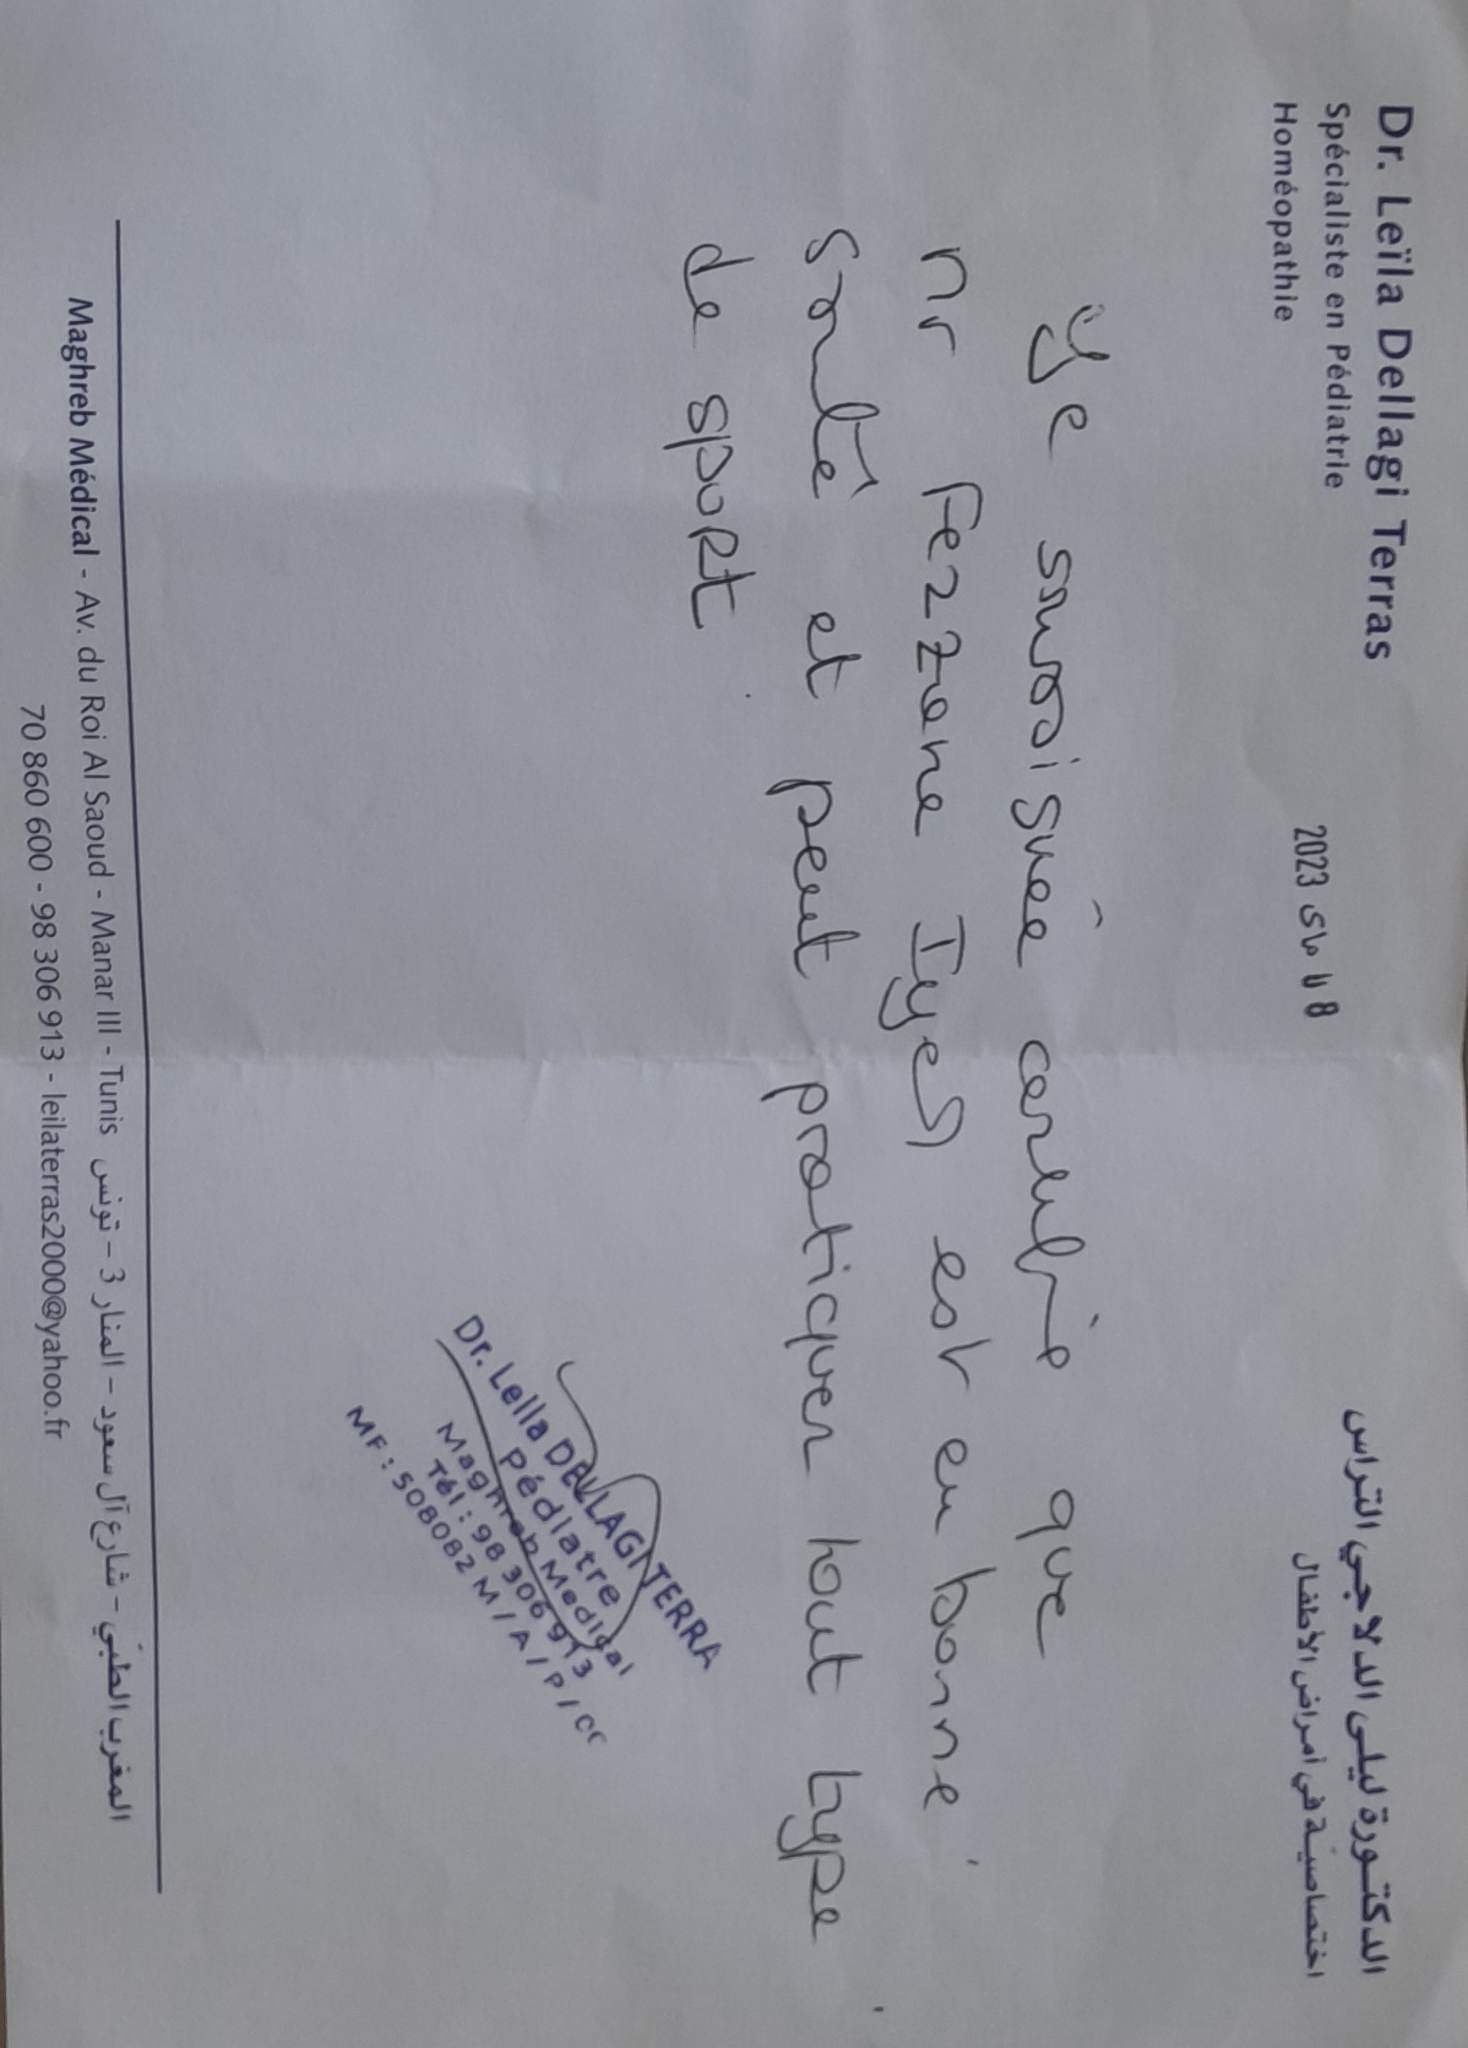 Dr. Leïla Dellagi Terras
Spécialiste en Pédiatrie
Homéopathie
الدكتورة ليلى الدلاجي التراس
اختصاصية في أمراض الأطفال
8 ماي 2023
Je soussignée certifie que
Mr Fezzene Iyed est en bonne
santé et peut pratiquer tout type
de sport
Dr. Leila DELLAGI TERRA
Pédiatre
Maghreb Medical
Tél : 98 306 913
MF : 508082 M / A / P / CC
Maghreb Médical - Av. du Roi Al Saoud - Manar III - Tunis المغرب الطبي - شارع آل سعود - المنار 3 - تونس
70 860 600 - 98 306 913 - leilaterras2000@yahoo.fr